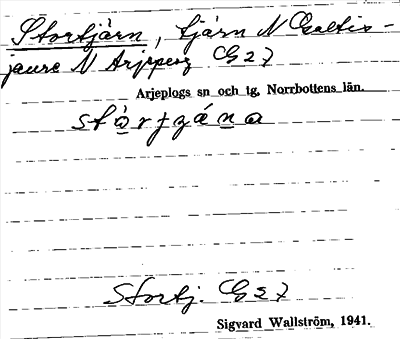 Stortjärn, tjärn N
jaure N Arjeplog Cg 27
Arjeplogs sn och tg, Norrbottens län.
Stortj. Cg 27
Sigvard Wallström, 1941.